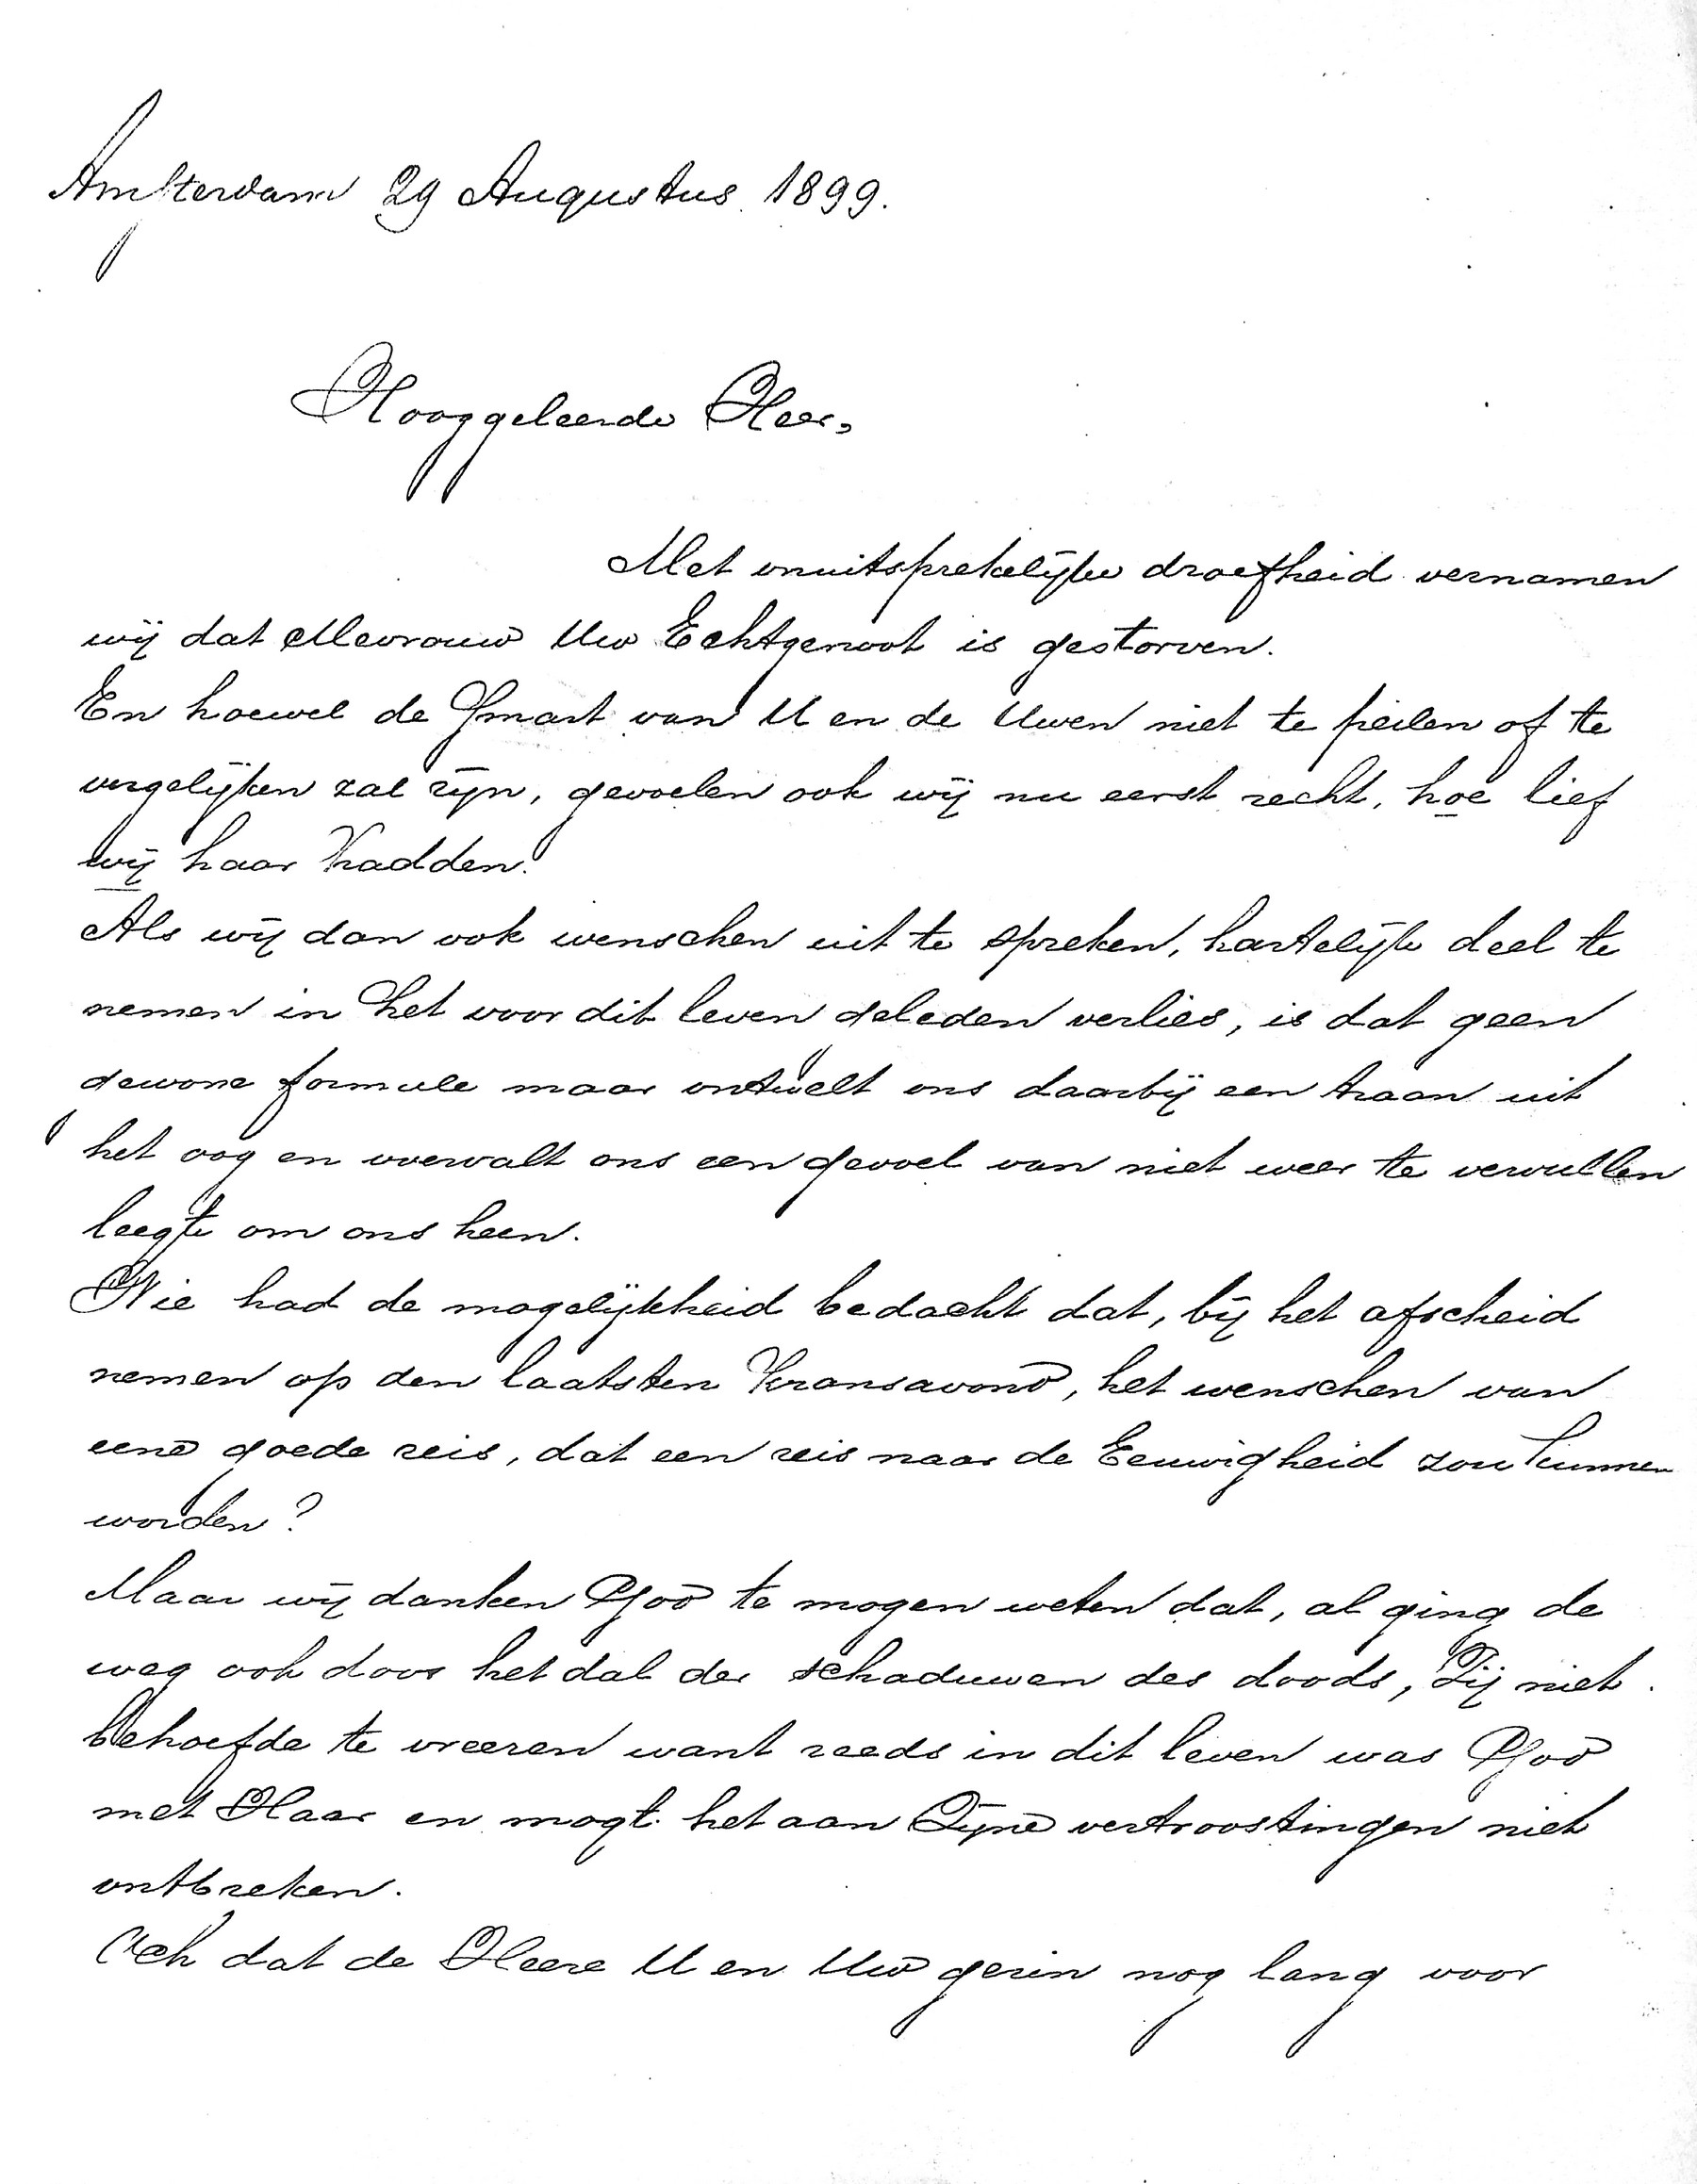 Amsterdam 29 Augustus 1899.
Hooggeleerde Heer,
Met onuitsprekelijke droefheid vernamen
wij dat Mevrouw Uw Echtgenoot is gestorven.
En hoewel de Smart van U en de Uwen niet te peilen of te
vergelijken zal zijn, gevoelen ook wij nu eerst recht, hoe lief
wij haar hadden.
Als wij dan ook wenschen uit te spreken, hartelijk deel te
nemen in het voor dit leven geleden verlies, is dat geen
gewone formule maar ontwelt ons daarbij een traan uit
het oog en overvalt ons een gevoel van niet weer te vervullen
leegte om ons heen.
Wie had de mogelijkheid bedacht dat, bij het afscheid
nemen op den laatsten Kransavond, het wenschen van
eene goede reis, dat een reis naar de Eeuwigheid zou kunnen
worden?
Maar wij danken God te mogen weten dat, al ging de
weg ook door het dal der schaduwen des doods, Zij niet
behoefde te vreezen want reeds in dit leven was God
met Haar en mogt het aan Zijne vertroostingen niet
ontbreken.
Och dat de Heere U en Uw gezin nog lang voor